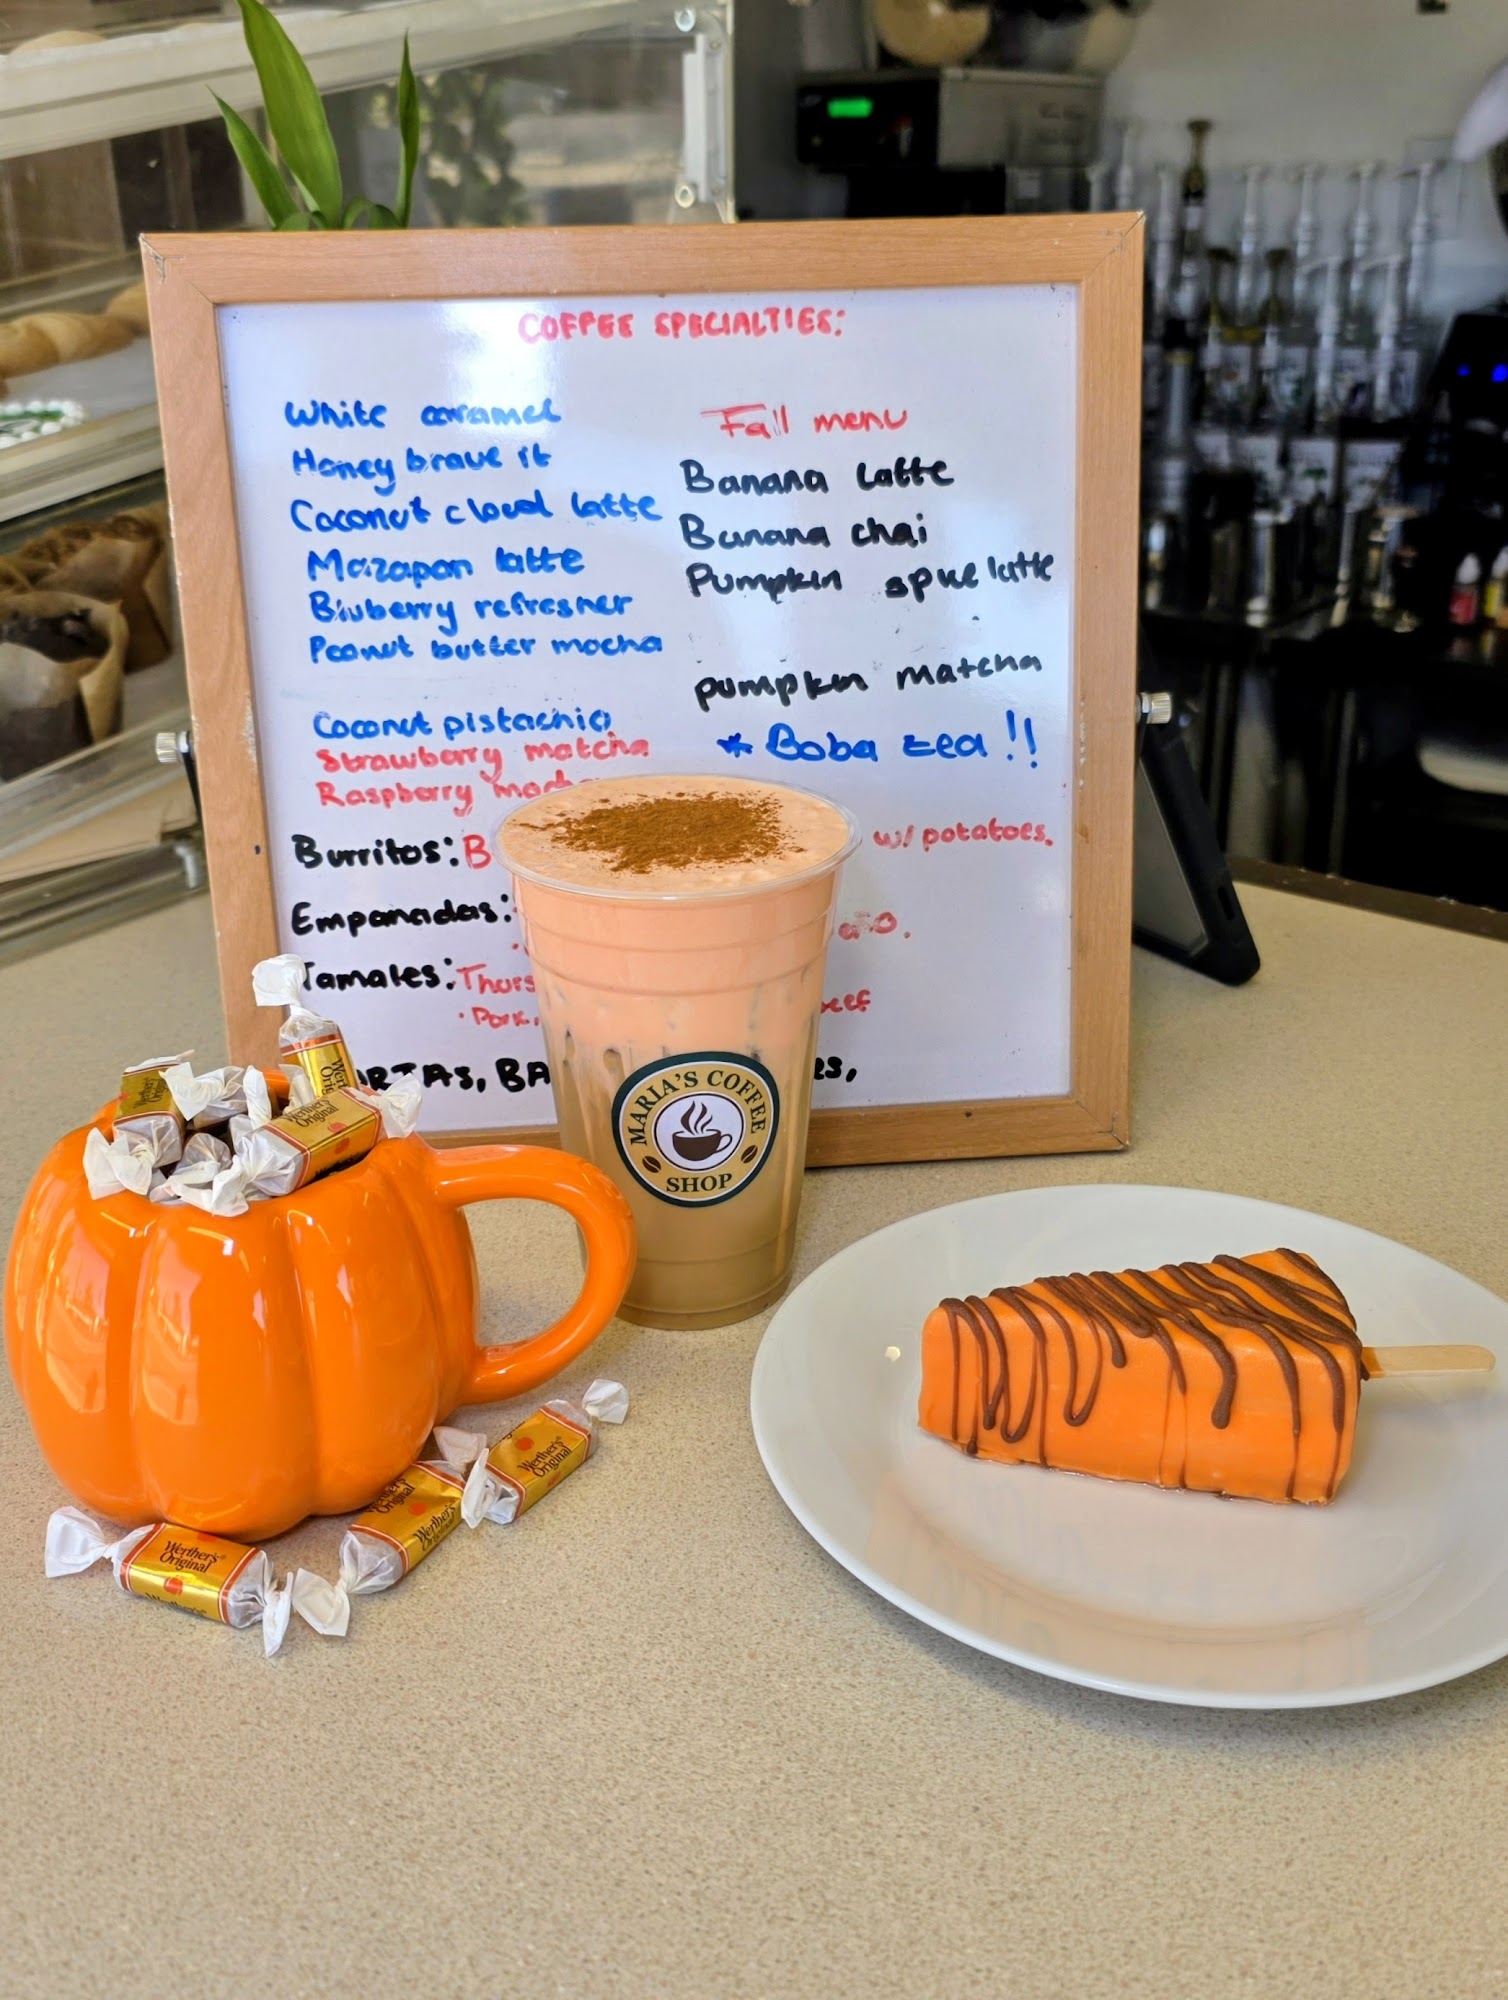 COFFEE SPECIALTIES:
White caramel
Honey brave it
Coconut cloud latte
Mazapan latte
Blueberry refresher
Peanut butter mocha
Coconut pistachio
Strawberry matcha
Raspberry
Fall menu
Banana Latte
Banana chai
Pumpkin spice latte
pumpkin matcha
* Boba tea !!
Burritos: B w/ potatoes.
Empanadas:
Tamales: Thurs
Pork, beef
BA
MARIA'S COFFEE
SHOP
Werther's
Original
Werther's
Original
Werther's
Original
Werther's
Original